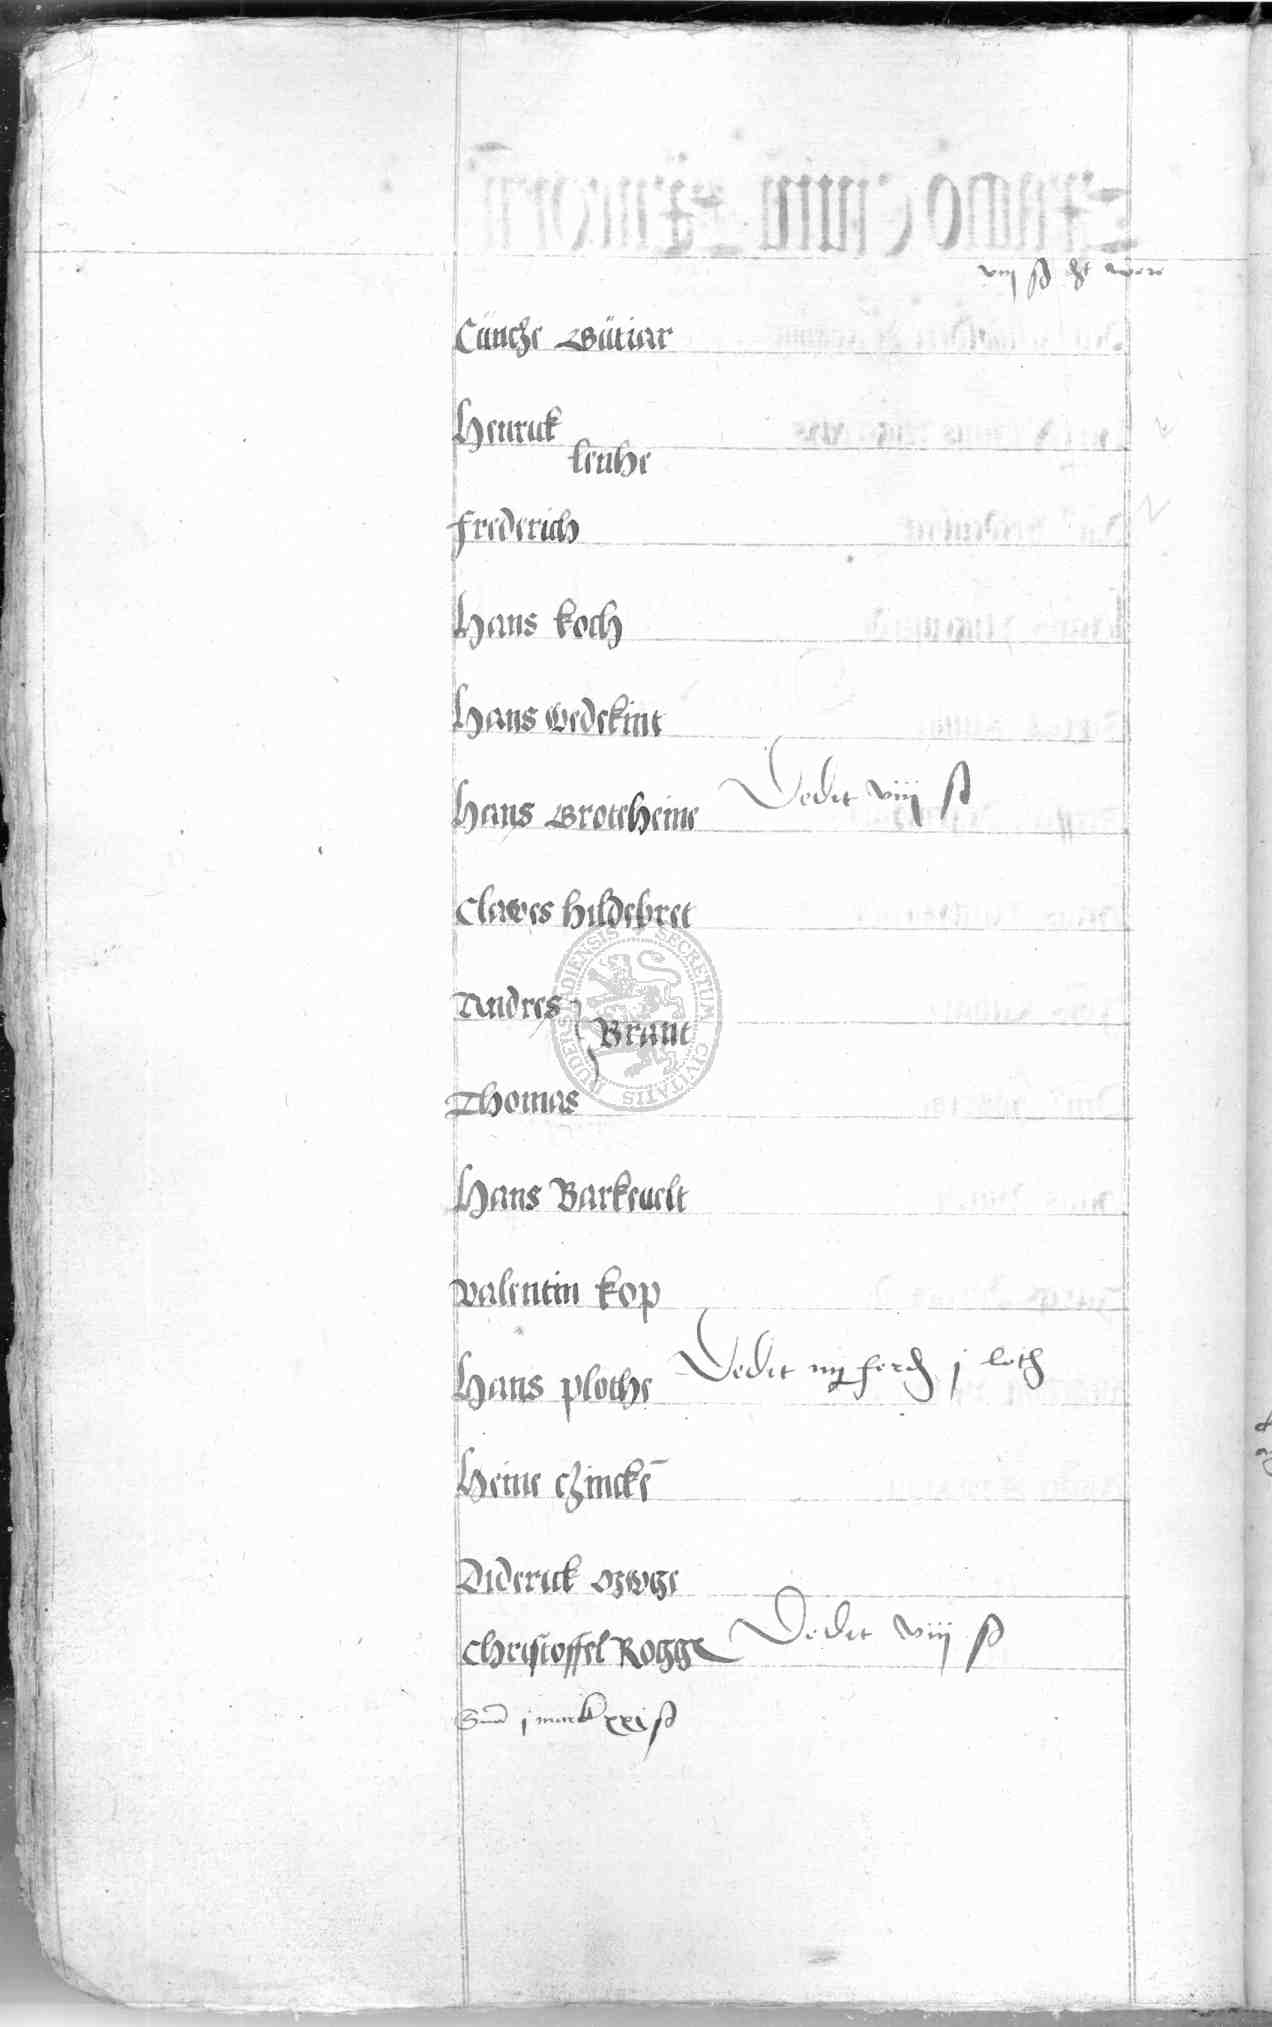 viij ß
Cüncze Gütiar
Henrick
lenhe
frederich
Hans koch
Hans Gedekint
Hans Groteheine Dedit viij ß
Clawes hildebret
Andres
Brant
Thomas
Hans Barkeuelt
Valentin kop
Hans plothe Dedit iij ferd j loth
Heine czincke
Diderick
Christoffel Rogge Dedit viij ß
Sum j mark xxi ß
SECRETUM CIVITATIS DUDERSTADIENSIS